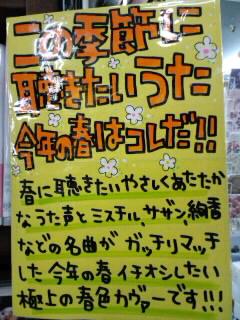 この季節に
聴きたいうた
今年の春はコレだ!!
春に聴きたいやさしくあたたか
なうた声とミスチル、サザン、絢香
などの名曲が ガッチリマッチ
した 今年の春イチオシしたい
極上の春色カヴァーです!!!